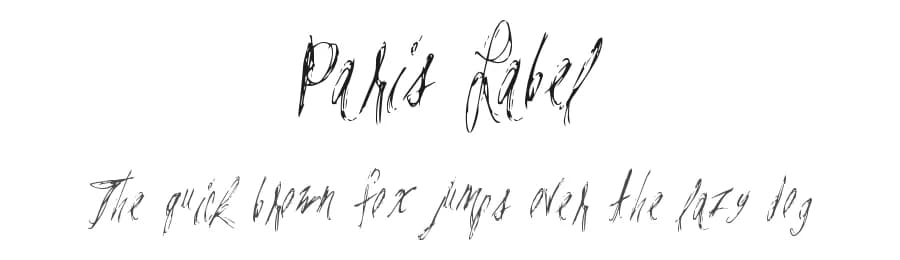 Paris Label
The quick brown fox jumps over the lazy dog